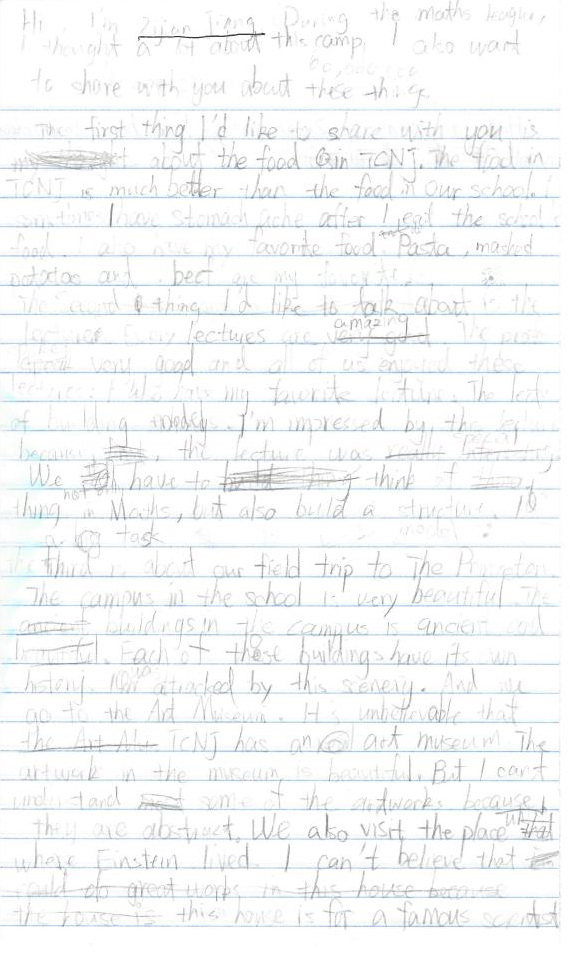 Hi I'm Zijian Jiang. During the maths league,
I thought a lot about this camp, I also want
to share with you about these things
The first thing I'd like to share with you is
about the food in TCNJ. The food in
TCNJ is much better than the food in our school. I
sometimes I have stomach ache after I eat the school's
food. I also have my favorite food. Pasta, mashed
potatoes and beef are my favorite.
The second thing I'd like to talk about is the
lectures. lectures are amazing very good The
very good and all of us enjoyed these
lectures. I also have my favorite lecture. The
of building I'm impressed by the
because, the lecture was special
We not only have to think of
thing in Maths, but also build a structure. It's
a big task
The Third is about our field trip to The Princeton
The campus in the school is very beautiful. The
ancient buildings in the campus is ancient and
beautiful. Each of these buildings have its own
history. attracked by this scenery. And we
go to the Art Museum. It's unbelievable that
the Art TCNJ has an art museum The
artwork in the museum is beautiful. But I can't
understand some of the artworks because
they are abstract. We also visit the place that
where Einstein lived. I can't believe that
could do great works in this house because
the house is this house is for a famous scientist